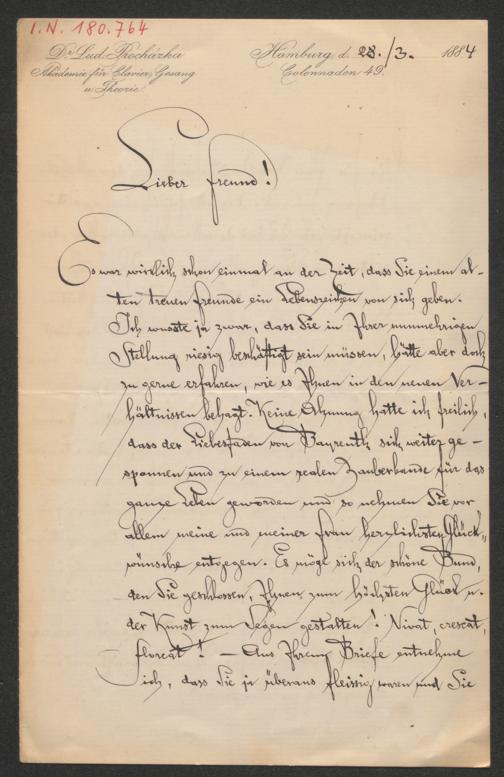 I.N. 180.764
Dr. Lud. Procházka
Akademie für Clavier, Gesang
u. Theorie.
Hamburg, d. 28./3. 1884
Colonnaden 49.
Lieber Freund!
Es war wirklich schon einmal an der Zeit, dass Sie einem al-
ten treuen Freunde ein Lebenszeichen von sich geben.
Ich wusste ja zwar, dass Sie in Ihrer nunmehrigen
Stellung riesig beschäftigt sein müssen, hätte aber doch
zu gerne erfahren, wie es Ihnen in den neuen Ver-
hältnissen behagt. Keine Ahnung hatte ich freilich,
dass der Liebesfaden von Bayreuth sich weiter ge-
sponnen und zu einem realen Zauberbande für das
ganze Leben geworden und so nehmen Sie vor
allem meine und meiner Frau herzlichsten Glück-
wünsche entgegen. Es möge sich der schöne Bund,
den Sie geschlossen, Ihnen zum höchsten Glück u.
der Kunst zum Segen gestalten! Vivat, crescat,
floreat! — Aus Ihrem Briefe entnehme
ich, dass Sie ja überaus fleissig waren und Sie